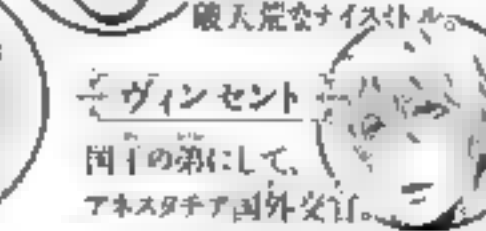 破天荒なナイスミドル。
ヴィンセント
国王の弟にして、
アネスタチア国外交官。